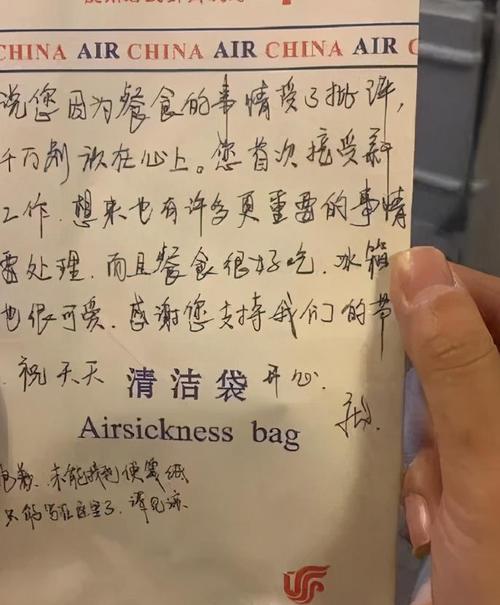 CHINA AIR CHINA AIR CHINA AIR C
说您因为餐食的事情受了批评,
千万别放在心上。您首次接受新
工作.想来也有许多更重要的事情
需处理.而且餐食很好吃.冰箱
也很可爱.感谢您支持我们的节
.祝天天 清洁袋 开心.
Airsickness bag
抱歉.未能找到便签纸
只能写在这里了.请见谅.